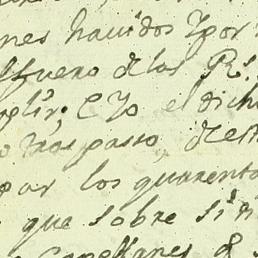 nes havidos y por
fuero de los Rs.
plir; E Yo el dich
traspasso, de est
por los quarenta
que sobre si
Capellanes q